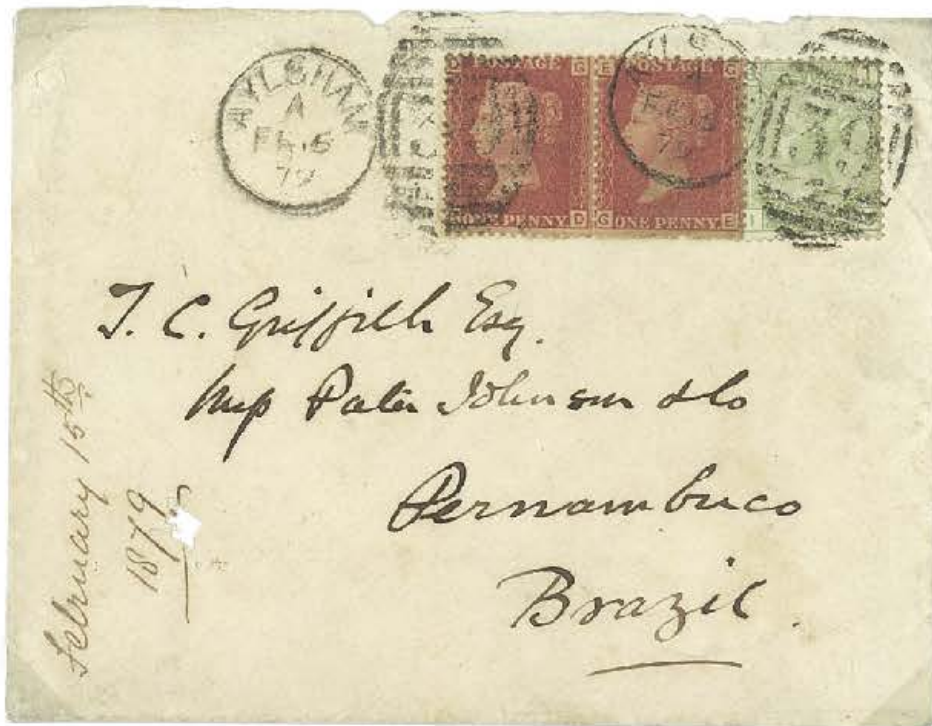 AYLSHAM
A
FE 15
79
POSTAGE
ONE PENNY
D
POSTAGE
G ONE PENNY E
T. C. Griffith Esq.
Johnson & Co
Pernambuco
Brazil.
February 15th
1879